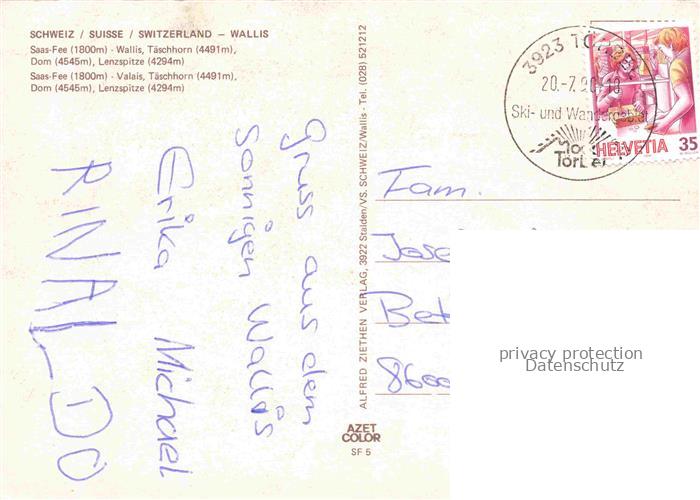 SCHWEIZ / SUISSE / SWITZERLAND – WALLIS
Saas-Fee (1800m) - Wallis, Täschhorn (4491m),
Dom (4545m), Lenzspitze (4294m)
Saas-Fee (1800m) - Valais, Täschhorn (4491m),
Dom (4545m), Lenzspitze (4294m)
Gruss aus dem
Sonnigen Wallis
Erika Michael
RINALDO
ALFRED ZIETHEN VERLAG, 3922 Stalden/VS. SCHWEIZ/Wallis - Tel. (028) 521212
AZET
COLOR
SF 5
3923
20.-7.90
Ski- und Wandergebiet
HELVETIA 35
Fam.
8600
privacy protection
Datenschutz